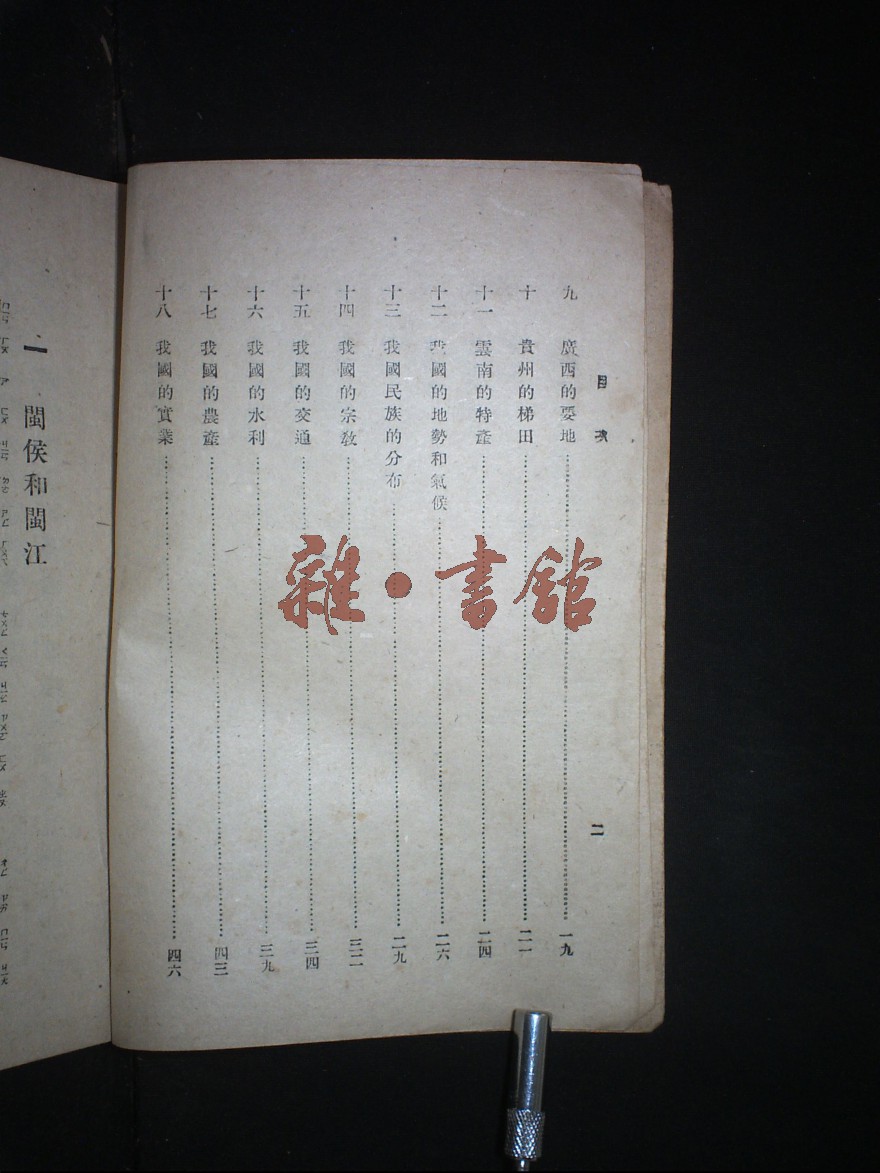 目次
二
九 廣西的要地 一九
十 貴州的梯田 二一
十一 雲南的特產 二四
十二 我國的地勢和氣候 二六
十三 我國民族的分布 二九
十四 我國的宗教 三二
十五 我國的交通 三四
十六 我國的水利 三九
十七 我國的農產 四三
十八 我國的實業 四六
一 閩侯和閩江
雜·書館